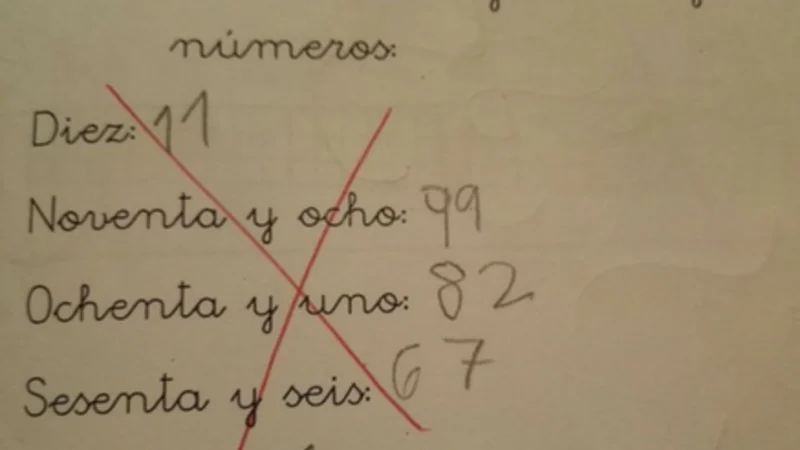 números:
Diez: 11
Noventa y ocho: 99
Ochenta y uno: 82
Sesenta y seis: 67